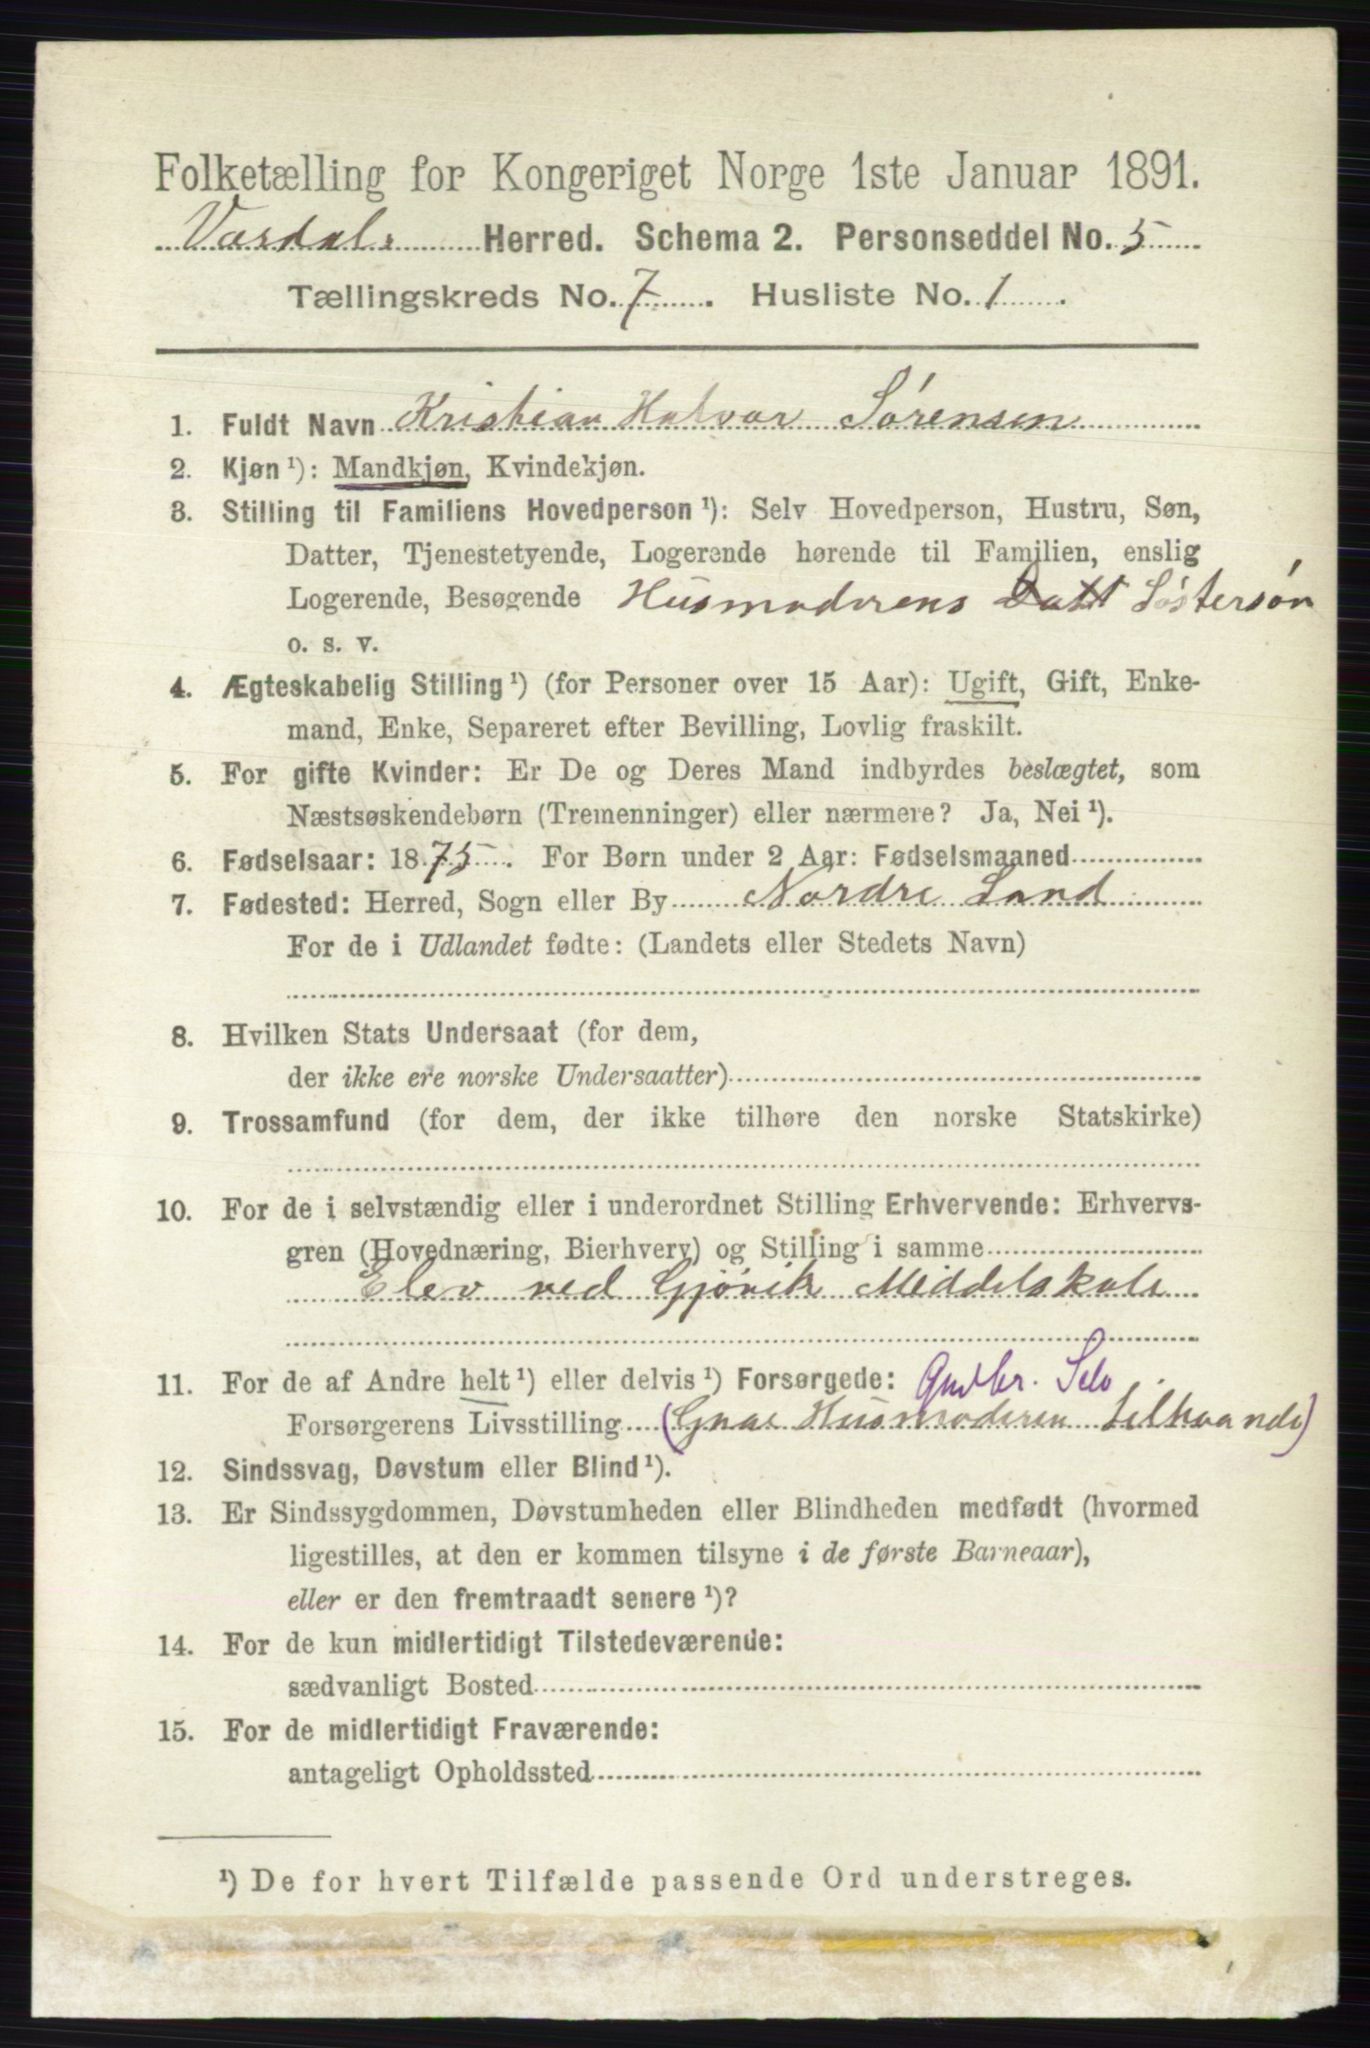 Folketælling for Kongeriget Norge 1ste Januar 1891.
Vardals Herred. Schema 2. Personseddel No. 5
Tællingskreds No. 7. Husliste No. 1.
1. Fuldt Navn Kristian Halvor Sørensen
2. Kjøn ¹): Mandkjøn, Kvindekjøn.
3. Stilling til Familiens Hovedperson ¹): Selv Hovedperson, Hustru, Søn,
Datter, Tjenestetyende, Logerende hørende til Familien, enslig
Logerende, Besøgende Husmoderens Datt Søstersøn
o. s. v.
4. Ægteskabelig Stilling ¹) (for Personer over 15 Aar): Ugift, Gift, Enke-
mand, Enke, Separeret efter Bevilling, Lovlig fraskilt.
5. For gifte Kvinder: Er De og Deres Mand indbyrdes beslægtet, som
Næstsøskendebørn (Tremenninger) eller nærmere? Ja, Nei ¹).
6. Fødselsaar: 1875. For Børn under 2 Aar: Fødselsmaaned
7. Fødested: Herred, Sogn eller By Nordre Land
For de i Udlandet fødte: (Landets eller Stedets Navn)
8. Hvilken Stats Undersaat (for dem,
der ikke ere norske Undersaatter)
9. Trossamfund (for dem, der ikke tilhøre den norske Statskirke)
10. For de i selvstændig eller i underordnet Stilling Erhvervende: Erhvervs-
gren (Hovednæring, Bierhverv) og Stilling i samme
Elev ved Gjøvik Middelskole
11. For de af Andre helt ¹) eller delvis ¹) Forsørgede: Gmbr. Selv
Forsørgerens Livsstilling (Husmoderen
12. Sindssvag, Døvstum eller Blind ¹).
13. Er Sindssygdommen, Døvstumheden eller Blindheden medfødt (hvormed
ligestilles, at den er kommen tilsyne i de første Barneaar),
eller er den fremtraadt senere ¹)?
14. For de kun midlertidigt Tilstedeværende:
sædvanligt Bosted
15. For de midlertidigt Fraværende:
antageligt Opholdssted
¹) De for hvert Tilfælde passende Ord understreges.